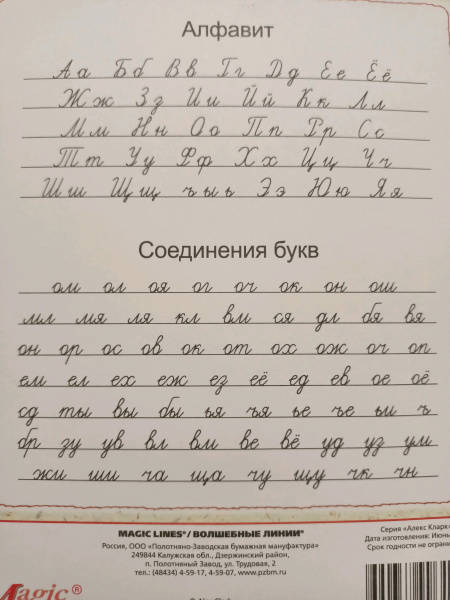 Алфавит
Аа Бб Вв Гг Дд Ее Ёё
Жж Зз Ии Йй Кк Лл
Мм Нн Оо Пп Рр Сс
Тт Уу Фф Хх Цц Чч
Шш Щщ ъыь Ээ Юю Яя
Соединения букв
ом ол оя ог оч ок он ош
мл мя ля кл вм ся дл бя вя
он ор ос ов ок от ох ож оч оп
ем ел ех еж ез её ед ев ое оё
сд ты вы бы ья ъя ье ъе ьи ъ
бр зу ув вл вм ве вё уд уз ум
жи ши ча ща чу щу чк чн
MAGIC LINES®/ ВОЛШЕБНЫЕ ЛИНИИ®
Россия, ООО «Полотняно-Заводская бумажная мануфактура»
249844 Калужская обл., Дзержинский район,
п. Полотняный Завод, ул. Трудовая, 2
тел.: (48434) 4-59-17, 4-59-07, www.pzbm.ru
Серия «Алекс Кларк
Дата изготовления: Июнь
Срок годности не ограни
Magic®